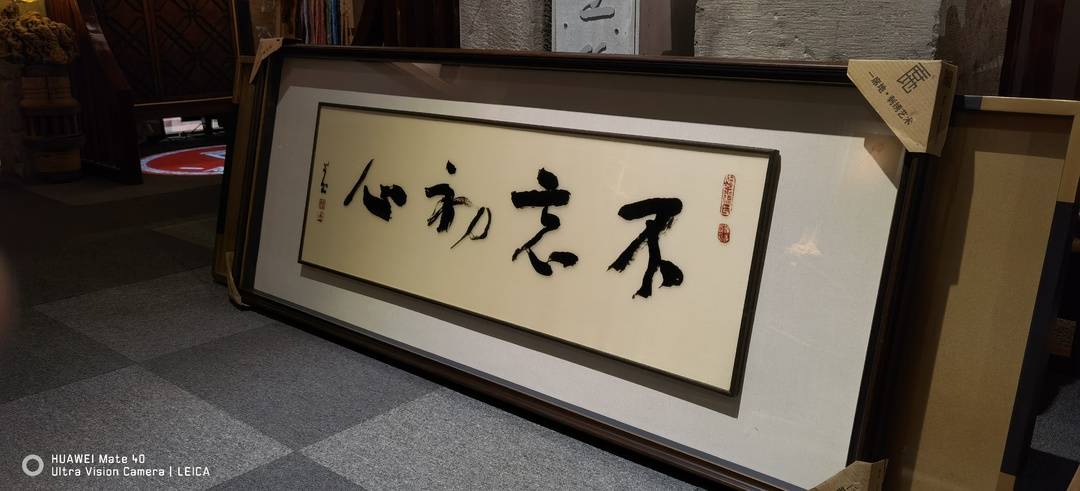 不忘初心
一席地·刺绣艺术
HUAWEI Mate 40
Ultra Vision Camera | LEICA